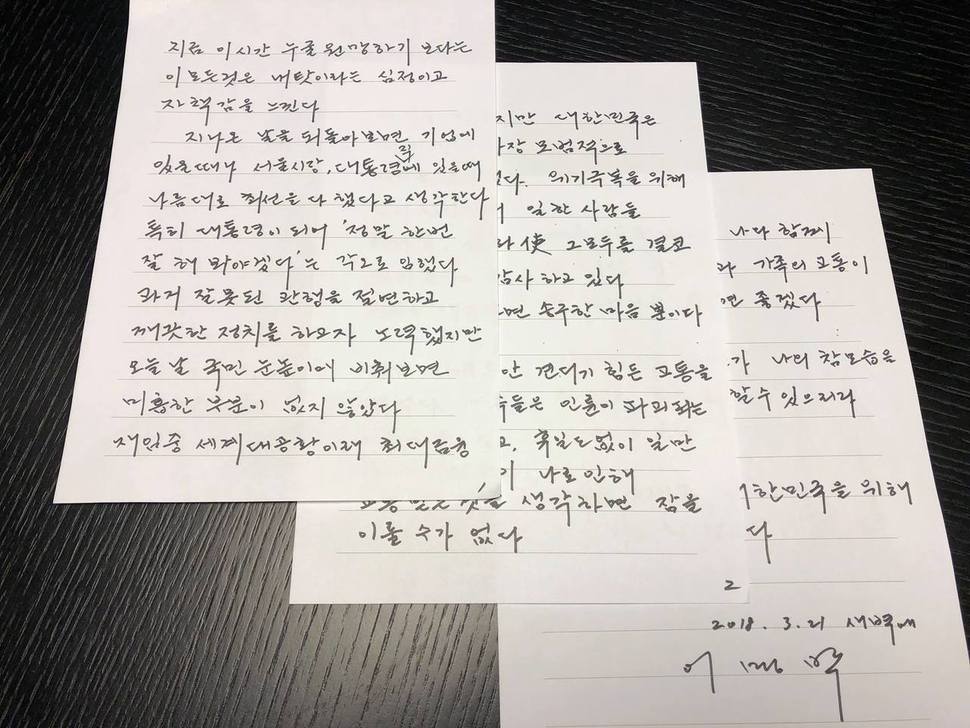 지금 이시간 누굴 원망하기 보다는
이 모든것은 내탓이라는 심정이고
자책감을 느낀다
지나온 날을 되돌아보면 기업에
있을때나 서울시장, 대통령직에 있을때
나름대로 최선을 다 했다고 생각한다
특히 대통령이 되어 '정말 한번
잘 해 봐야겠다'는 각오로 임했다
과거 잘못된 관행을 절연하고
깨끗한 정치를 하고자 노력했지만
오늘 날 국민 눈높이에 비춰보면
미흡한 부문이 없지 않았다
재임중 세계대공황이래 최대금융
지만 대한민국은
장 모범적으로
다. 위기극복을 위해
일한 사람들
使 그모두를 결코
감사 하고 있다
면 송구한 마음 뿐이다
안 견디기 힘든 고통을
들은 인륜이 파괴되는
고, 휴일도 없이 일만
기 나로 인해
고통받는 것을 생각하면 잠을
이룰 수가 없다
2
나와 함께
가족의 고통이
면 좋겠다
가 나의 참모습을
할 수 있으리라
한민국을 위해
다
2018. 3. 21 새벽에
이 명 박